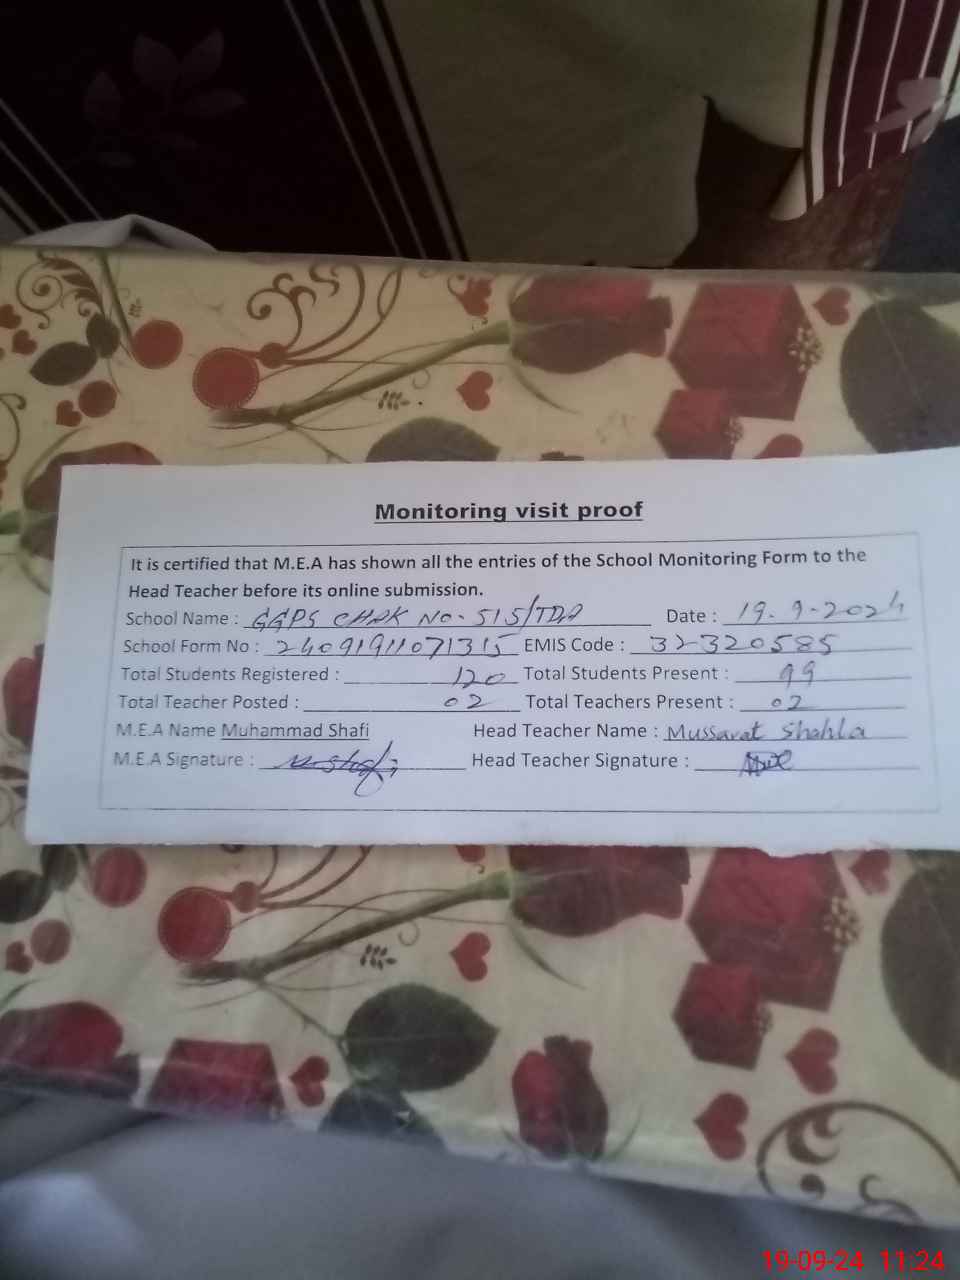 Monitoring visit proof
It is certified that M.E.A has shown all the entries of the School Monitoring Form to the
Head Teacher before its online submission.
School Name : GGPS CHAK NO. 515/TDA Date : 19-9-2024
School Form No : 24091911071315 EMIS Code : 32320585
Total Students Registered : 120 Total Students Present : 99
Total Teacher Posted : 02 Total Teachers Present : 02
M.E.A Name Muhammad Shafi Head Teacher Name : Mussarat Shahla
M.E.A Signature : Head Teacher Signature :
19-09-24 11:24